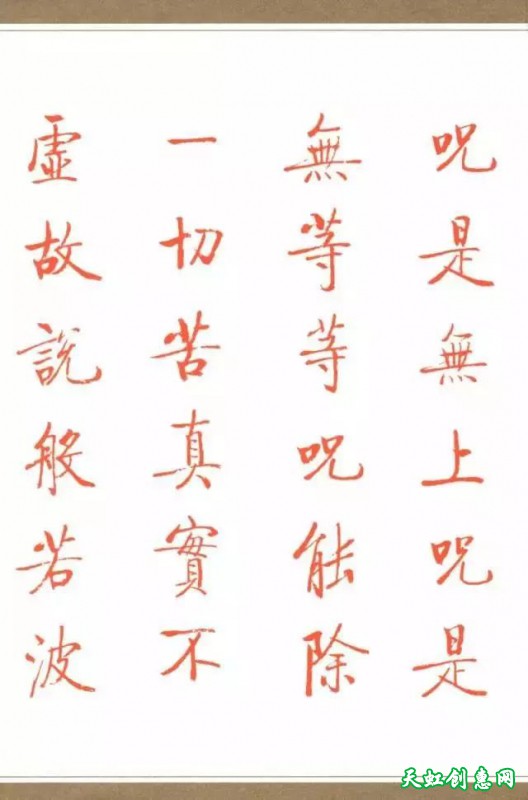 呪是無上呪是
無等等呪能除
一切苦真實不
虛故說般若波
天虹创惠网